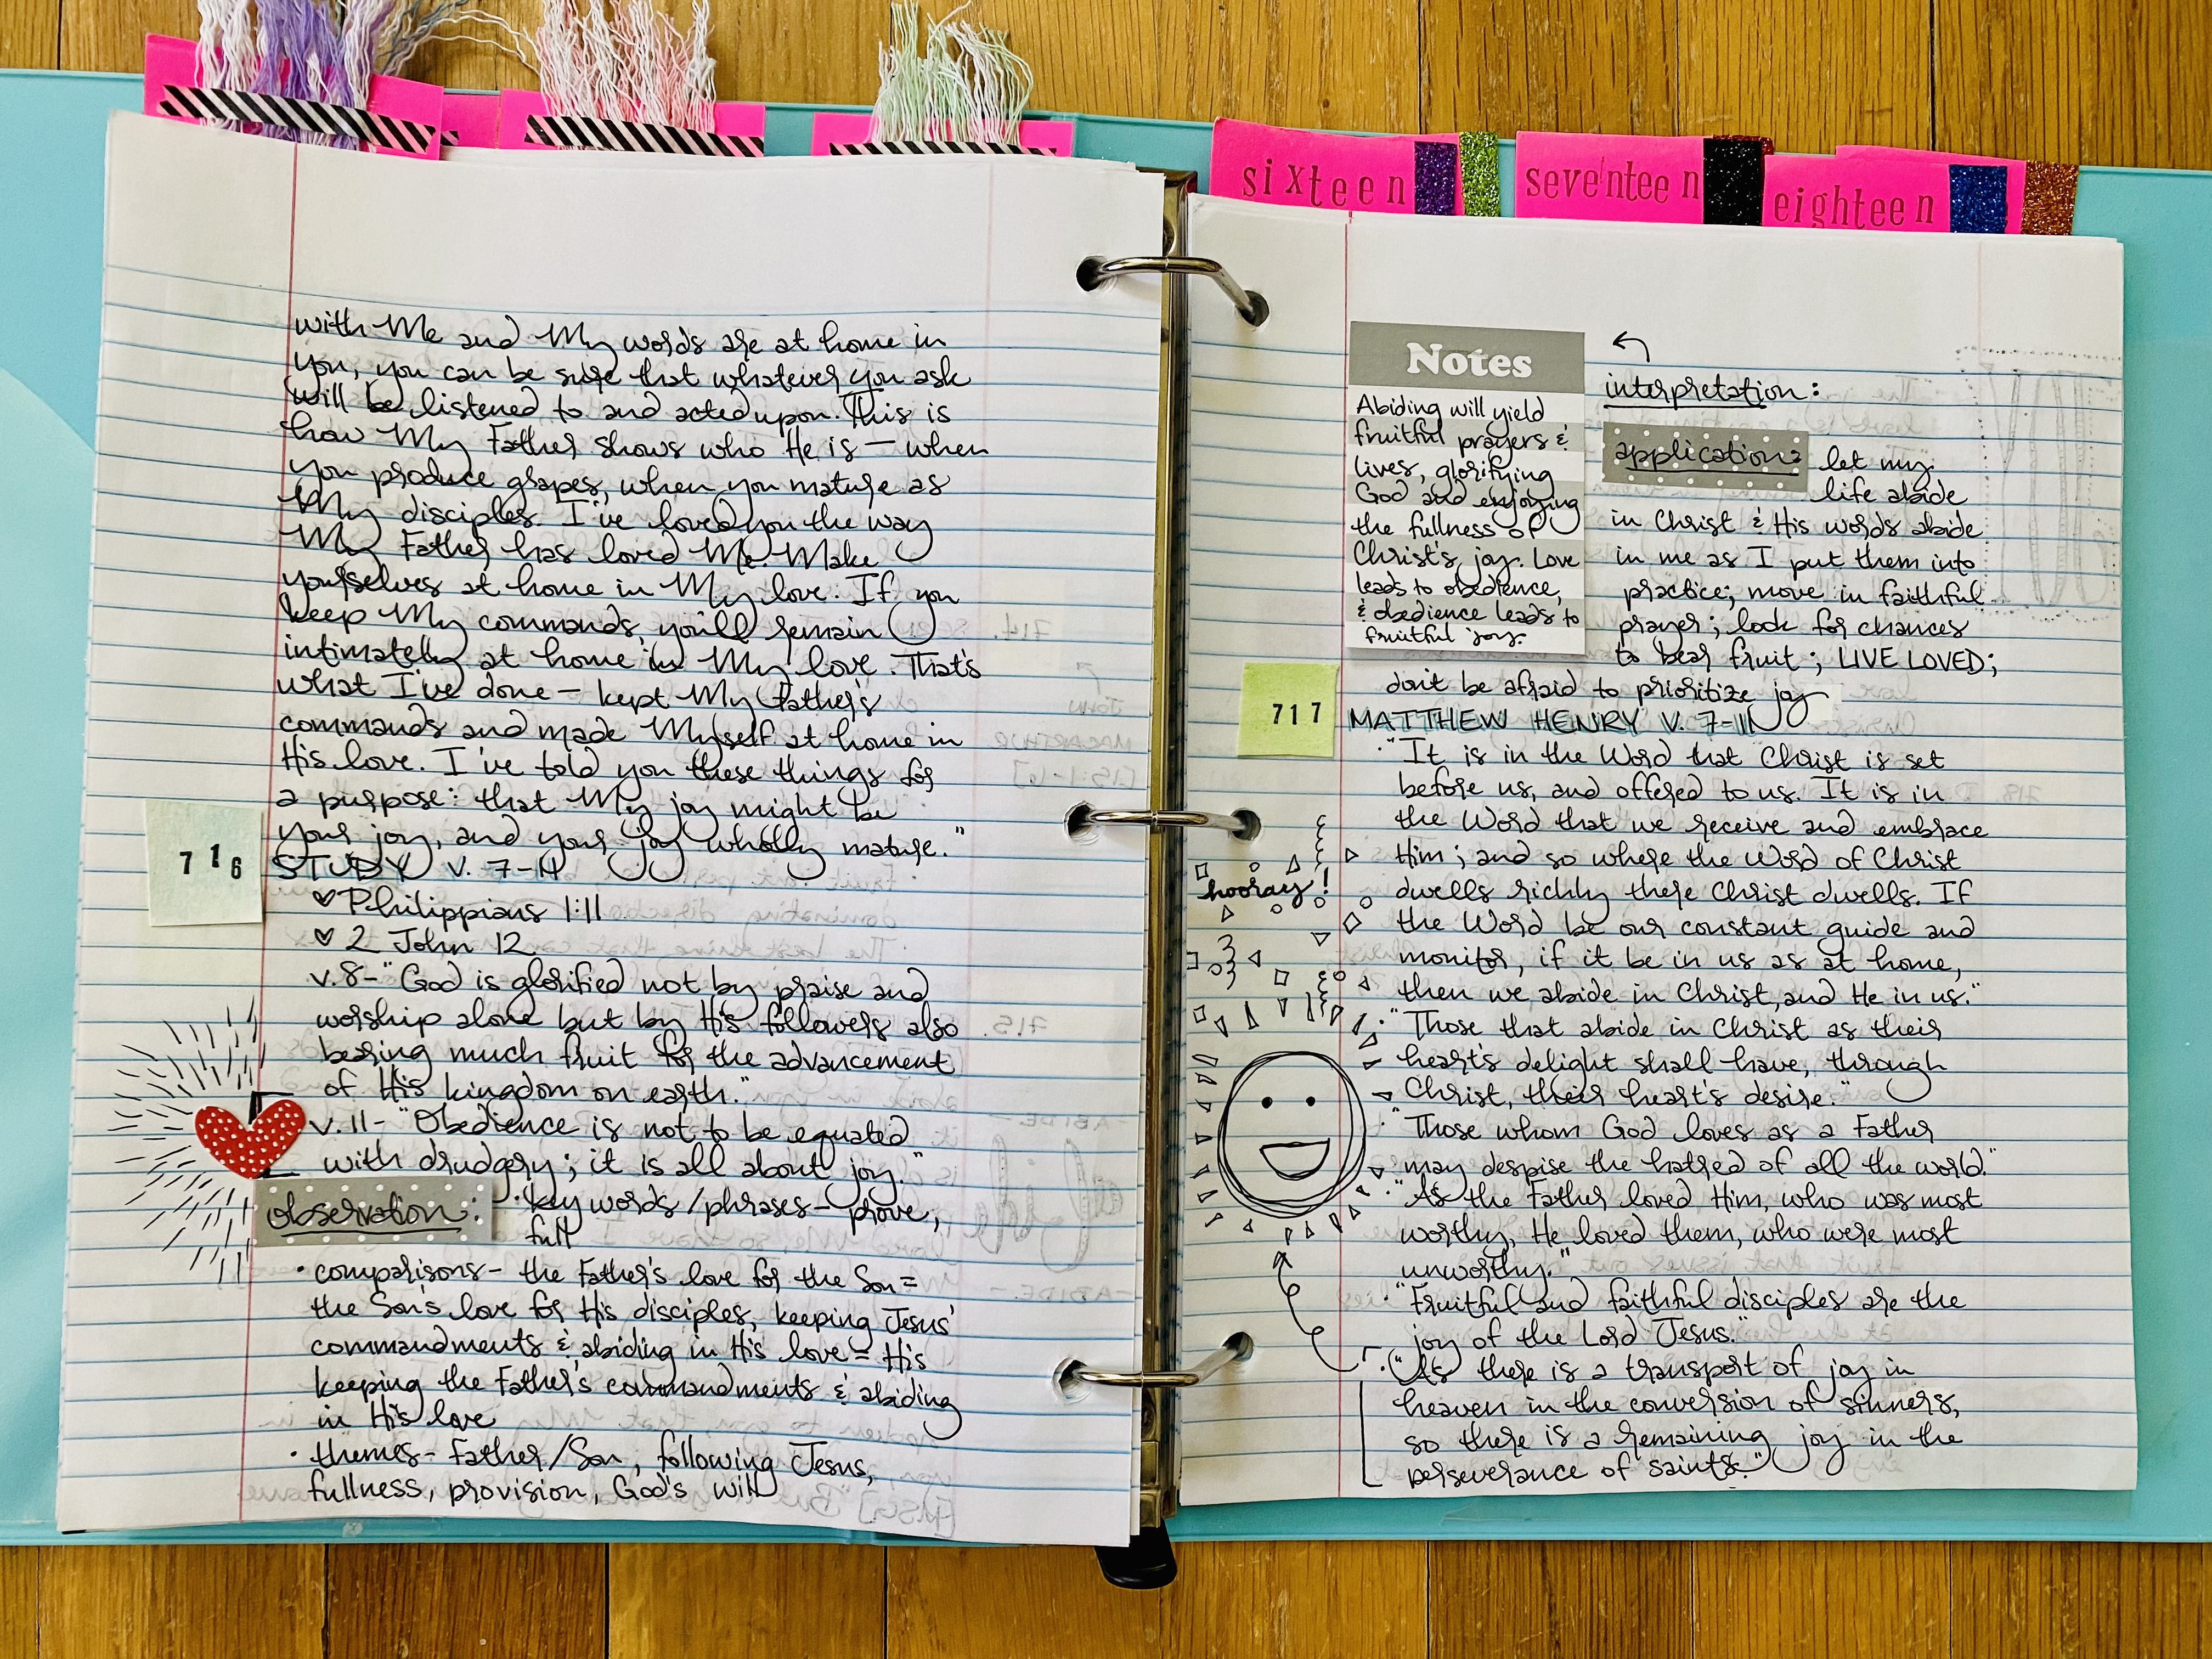 with Me and My words are at home in
you, you can be sure that whatever you ask
will be listened to and acted upon. This is
how My Father shows who He is — when
you produce grapes, when you mature as
My disciples. I've loved you the way
My Father has loved Me. Make
yourselves at home in My love. If you
keep My commands, you'll remain
intimately at home in My love. That's
what I've done — kept My Father's
commands and made Myself at home in
His love. I've told you these things for
a purpose: that My joy might be
your joy, and your joy wholly mature."
716
STUDY V. 7-11
♡ Philippians 1:11
♡ 2 John 12
v.8- "God is glorified not by praise and
worship alone but by His followers also
bearing much fruit for the advancement
of His kingdom on earth."
v.11- "Obedience is not to be equated
with drudgery; it is all about joy."
observation: · key words/phrases- prove,
full
· comparisons- the Father's love for the Son =
the Son's love for His disciples, keeping Jesus'
commandments & abiding in His love = His
keeping the Father's commandments & abiding
in His love
· themes- Father/Son, following Jesus,
fullness, provision, God's will
sixteen
seventeen
eighteen
Notes
Abiding will yield
fruitful prayers &
lives, glorifying
God and enjoying
the fullness of
Christ's joy. Love
leads to obedience,
& obedience leads to
fruitful joy.
interpretation:
application: let my
life abide
in Christ & His words abide
in me as I put them into
practice; move in faithful
prayer; look for chances
to bear fruit; LIVE LOVED;
don't be afraid to prioritize joy
717
MATTHEW HENRY V. 7-11
· "It is in the Word that Christ is set
before us, and offered to us. It is in
the Word that we receive and embrace
Him; and so where the Word of Christ
dwells richly there Christ dwells. If
the Word be our constant guide and
monitor, if it be in us as at home,
then we abide in Christ, and He in us."
· "Those that abide in Christ as their
heart's delight shall have, through
Christ, their heart's desire."
· "Those whom God loves as a Father
may despise the hatred of all the world."
· "As the Father loved Him, who was most
worthy, He loved them, who were most
unworthy."
· "Fruitful and faithful disciples are the
joy of the Lord Jesus."
· "As there is a transport of joy in
heaven in the conversion of sinners,
so there is a remaining joy in the
perseverance of saints."
hooray!